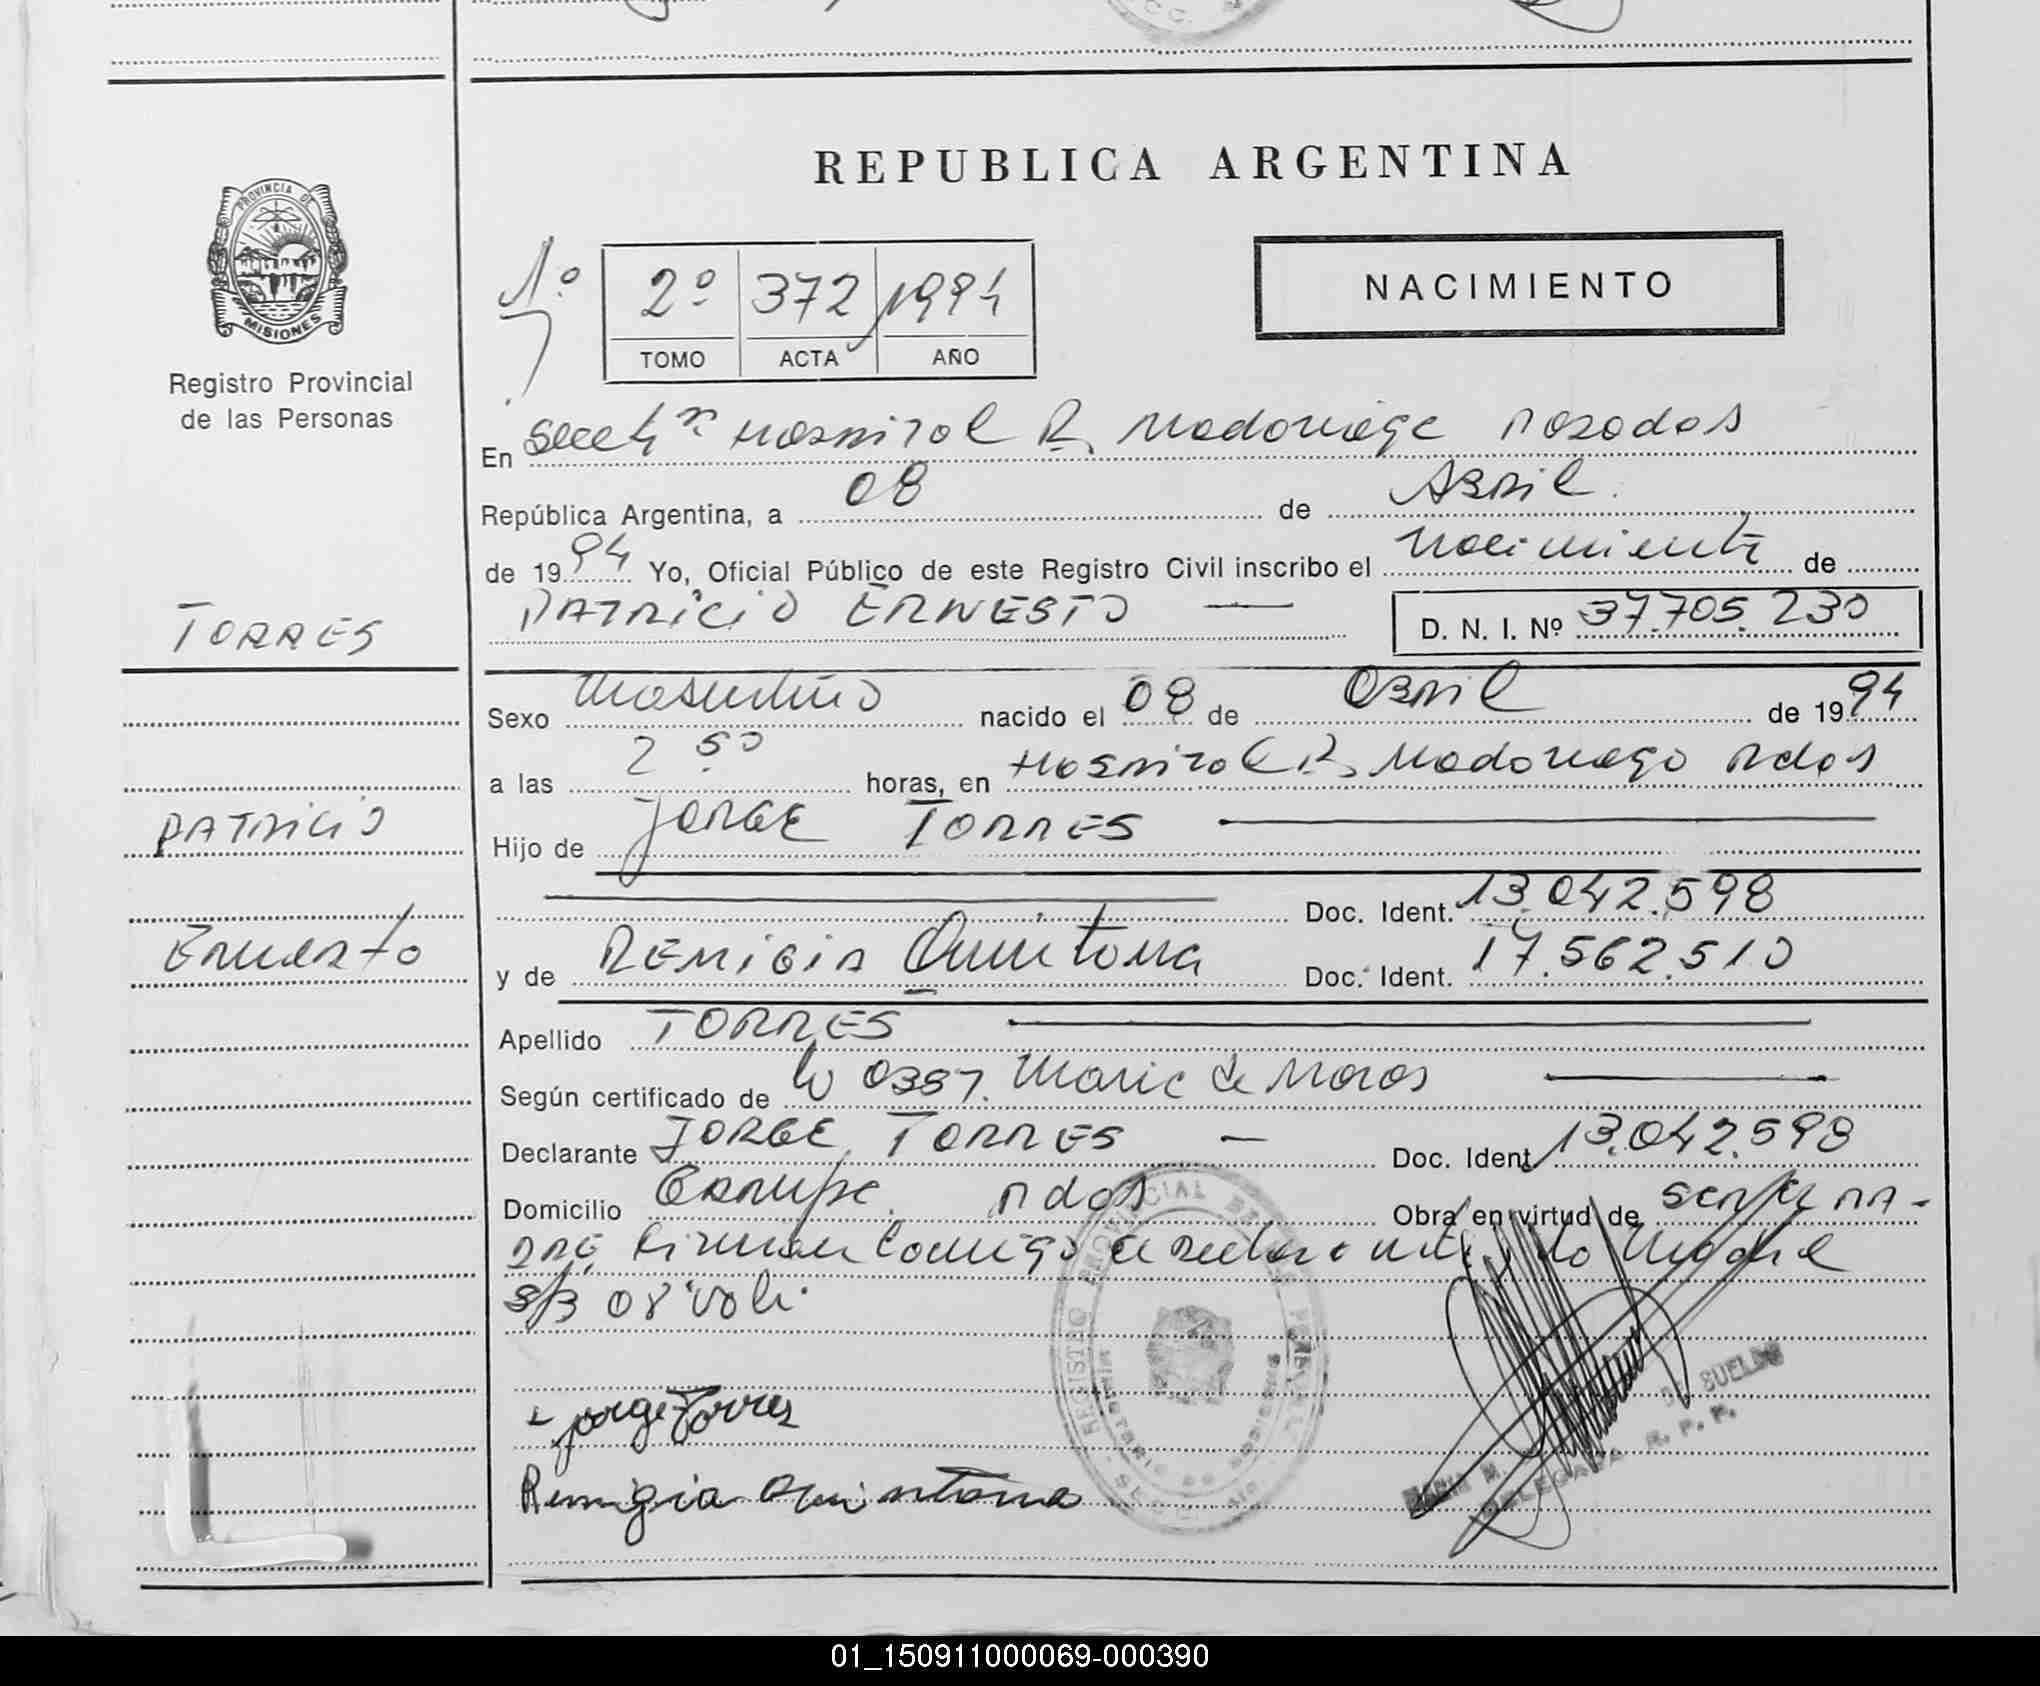 REPUBLICA ARGENTINA
PROVINCIA DE
MISIONES
Registro Provincial
de las Personas
1º
2º 372 1994
TOMO ACTA AÑO
NACIMIENTO
En Secc 4ª Hospital R. Madariaga Posadas
República Argentina, a 08 de Abril
de 1994 Yo, Oficial Público de este Registro Civil inscribo el nacimiento de
PATRICIO ERNESTO D. N. I. Nº 37.705.230
TORRES
Sexo masculino nacido el 08 de Abril de 1994
a las 2 50 horas, en Hospital R. Madariaga Pdas
PATRICIO
Hijo de JORGE TORRES
Doc. Ident. 13.042.598
Ernesto
y de REMIGIA Quintana Doc. Ident. 17.562.510
Apellido TORRES
Según certificado de la Obst. Maria de
Declarante JORGE TORRES Doc. Ident. 13.042.598
Domicilio Garupa. Pdas Obra en virtud de ser el PA-
DRE, firman Conmigo el declarante, la Madre
S/B 08 Vale.
Jorge Torres
Remigia Quintana
REGISTRO PROVINCIAL DE LAS PERSONAS
SUELDO
DELEGADA R. P. P.
01_150911000069-000390